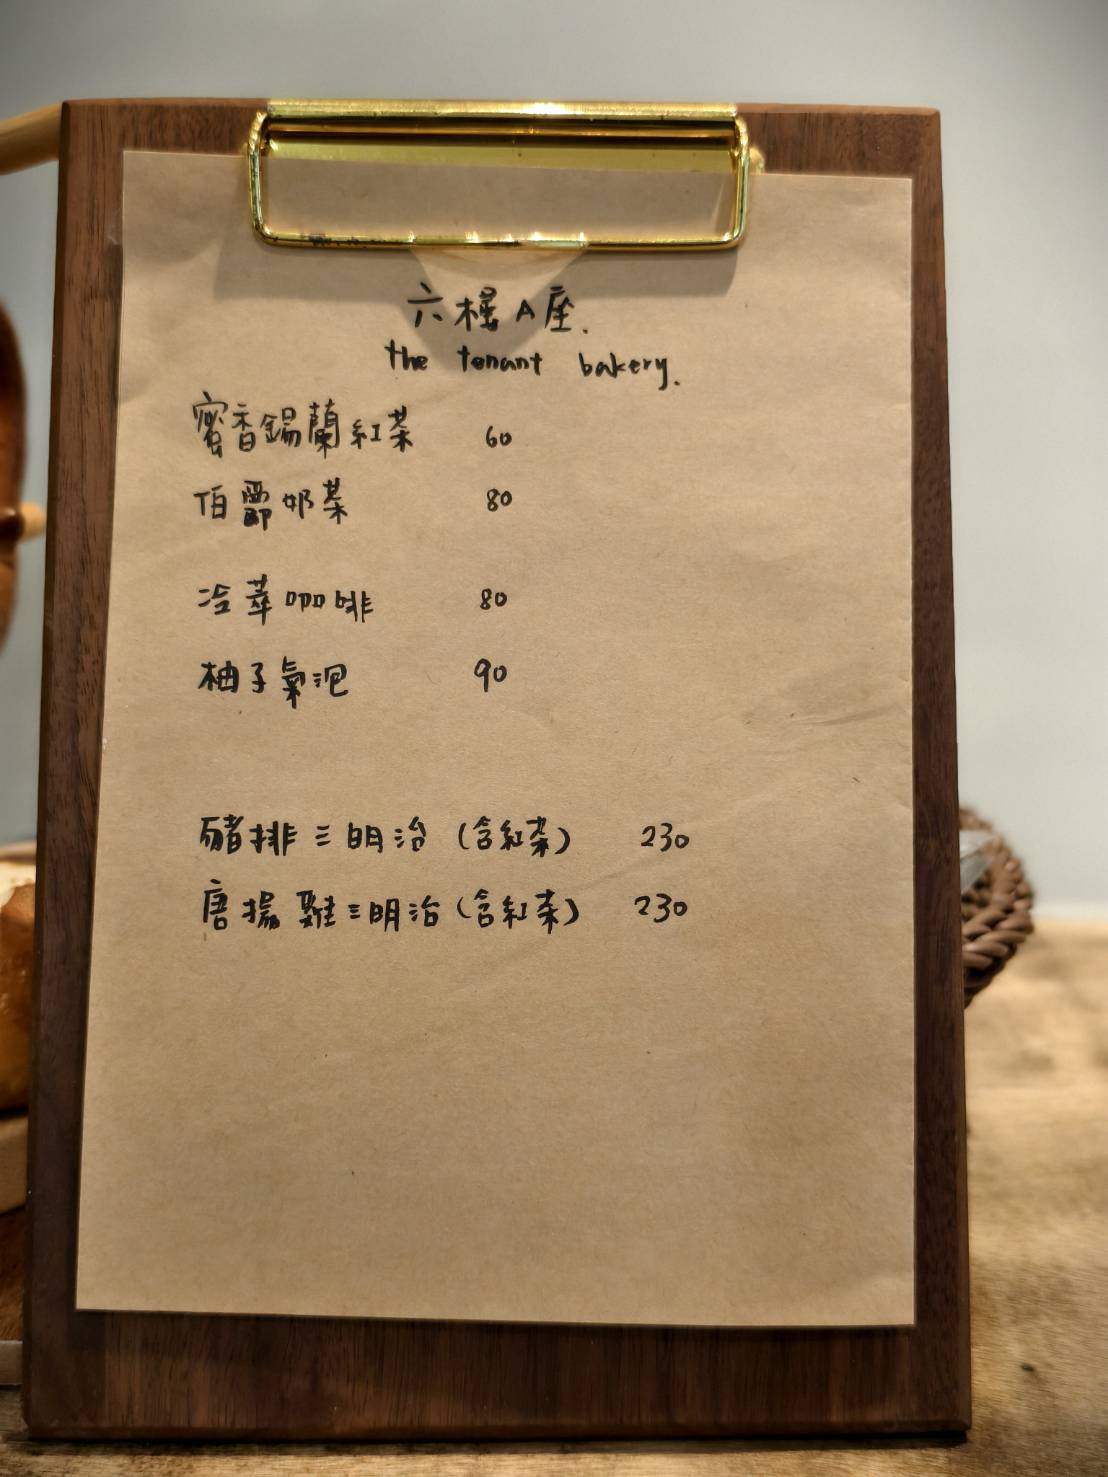 六樓A座.
the tenant bakery.
蜜香錫蘭紅茶 60
伯爵奶茶 80
冷萃咖啡 80
柚子氣泡 90
豬排三明治（含紅茶） 230
唐揚雞三明治（含紅茶） 230